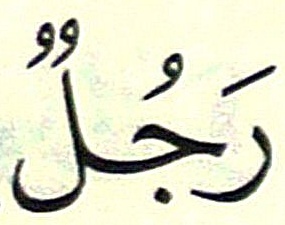 رَجُلٌ